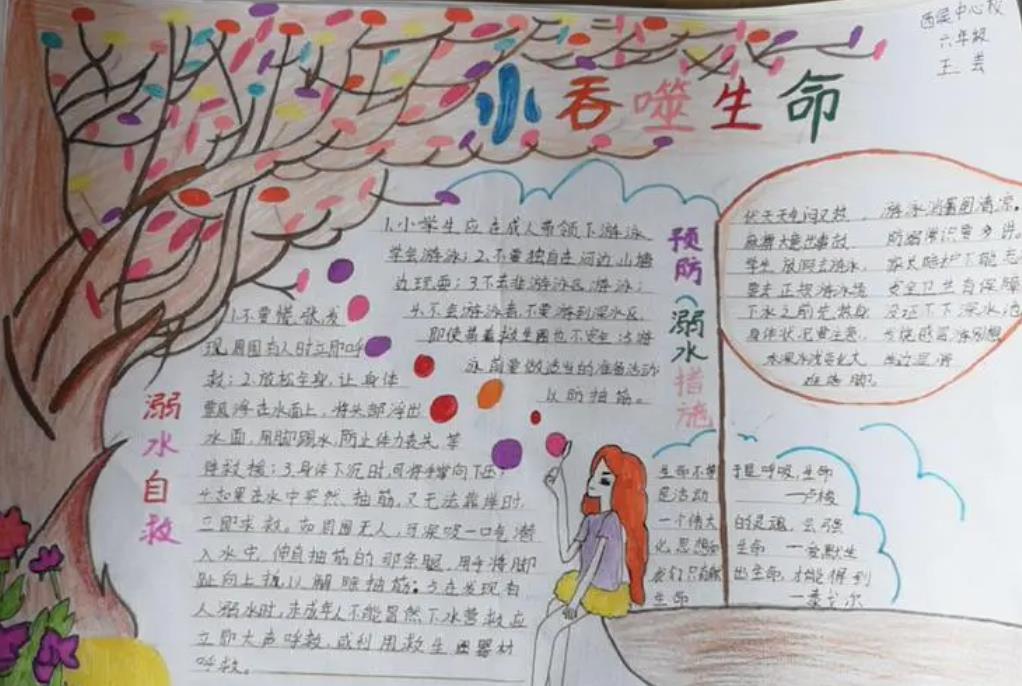 西吴中心校
六年级
王芸
小吞噬生命
1.小学生应在成人带领下游泳
学会游泳；2.不要独自在河边、山塘
边玩耍；3.不去非游泳区游泳；
4.不会游泳者，不要游到深水区
即使带着救生圈也不安全；5.游
泳前要做适当的准备活动
以防抽筋。
预防溺水措施
伏天天气闷又热，游泳消暑图清凉。
麻痹大意出事故 防溺常识要多讲。
学生放假去游泳，家长陪护不能忘
要去正规游泳馆 安全卫生有保障
下水之前先热身 没证不下深水池
身体状况要注意，发烧感冒游别想
水深水浅变化大
溺水自救
1.不要慌张，发
现周围有人时立即呼
救；2.放松全身，让身体
飘浮在水面上，将头部浮出
水面，用脚踢水，防止体力丧失，等
待救援；3.身体下沉时，可将手掌向下压；
4.如果在水中突然抽筋，又无法靠岸时，
立即求救。如周围无人，可深吸一口气潜
入水中，伸直抽筋的那条腿，用手将脚
趾向上扳，以解除抽筋；5.在发现有
人溺水时，未成年人不能冒然下水营救，应
立即大声呼救，或利用救生圈器材
呼救。
生命不等于是呼吸，生命
是活动 —卢梭
一个伟大的灵魂，会强
化思想和生命 —爱默生
我们只有献出生命，才能得到
生命 —泰戈尔